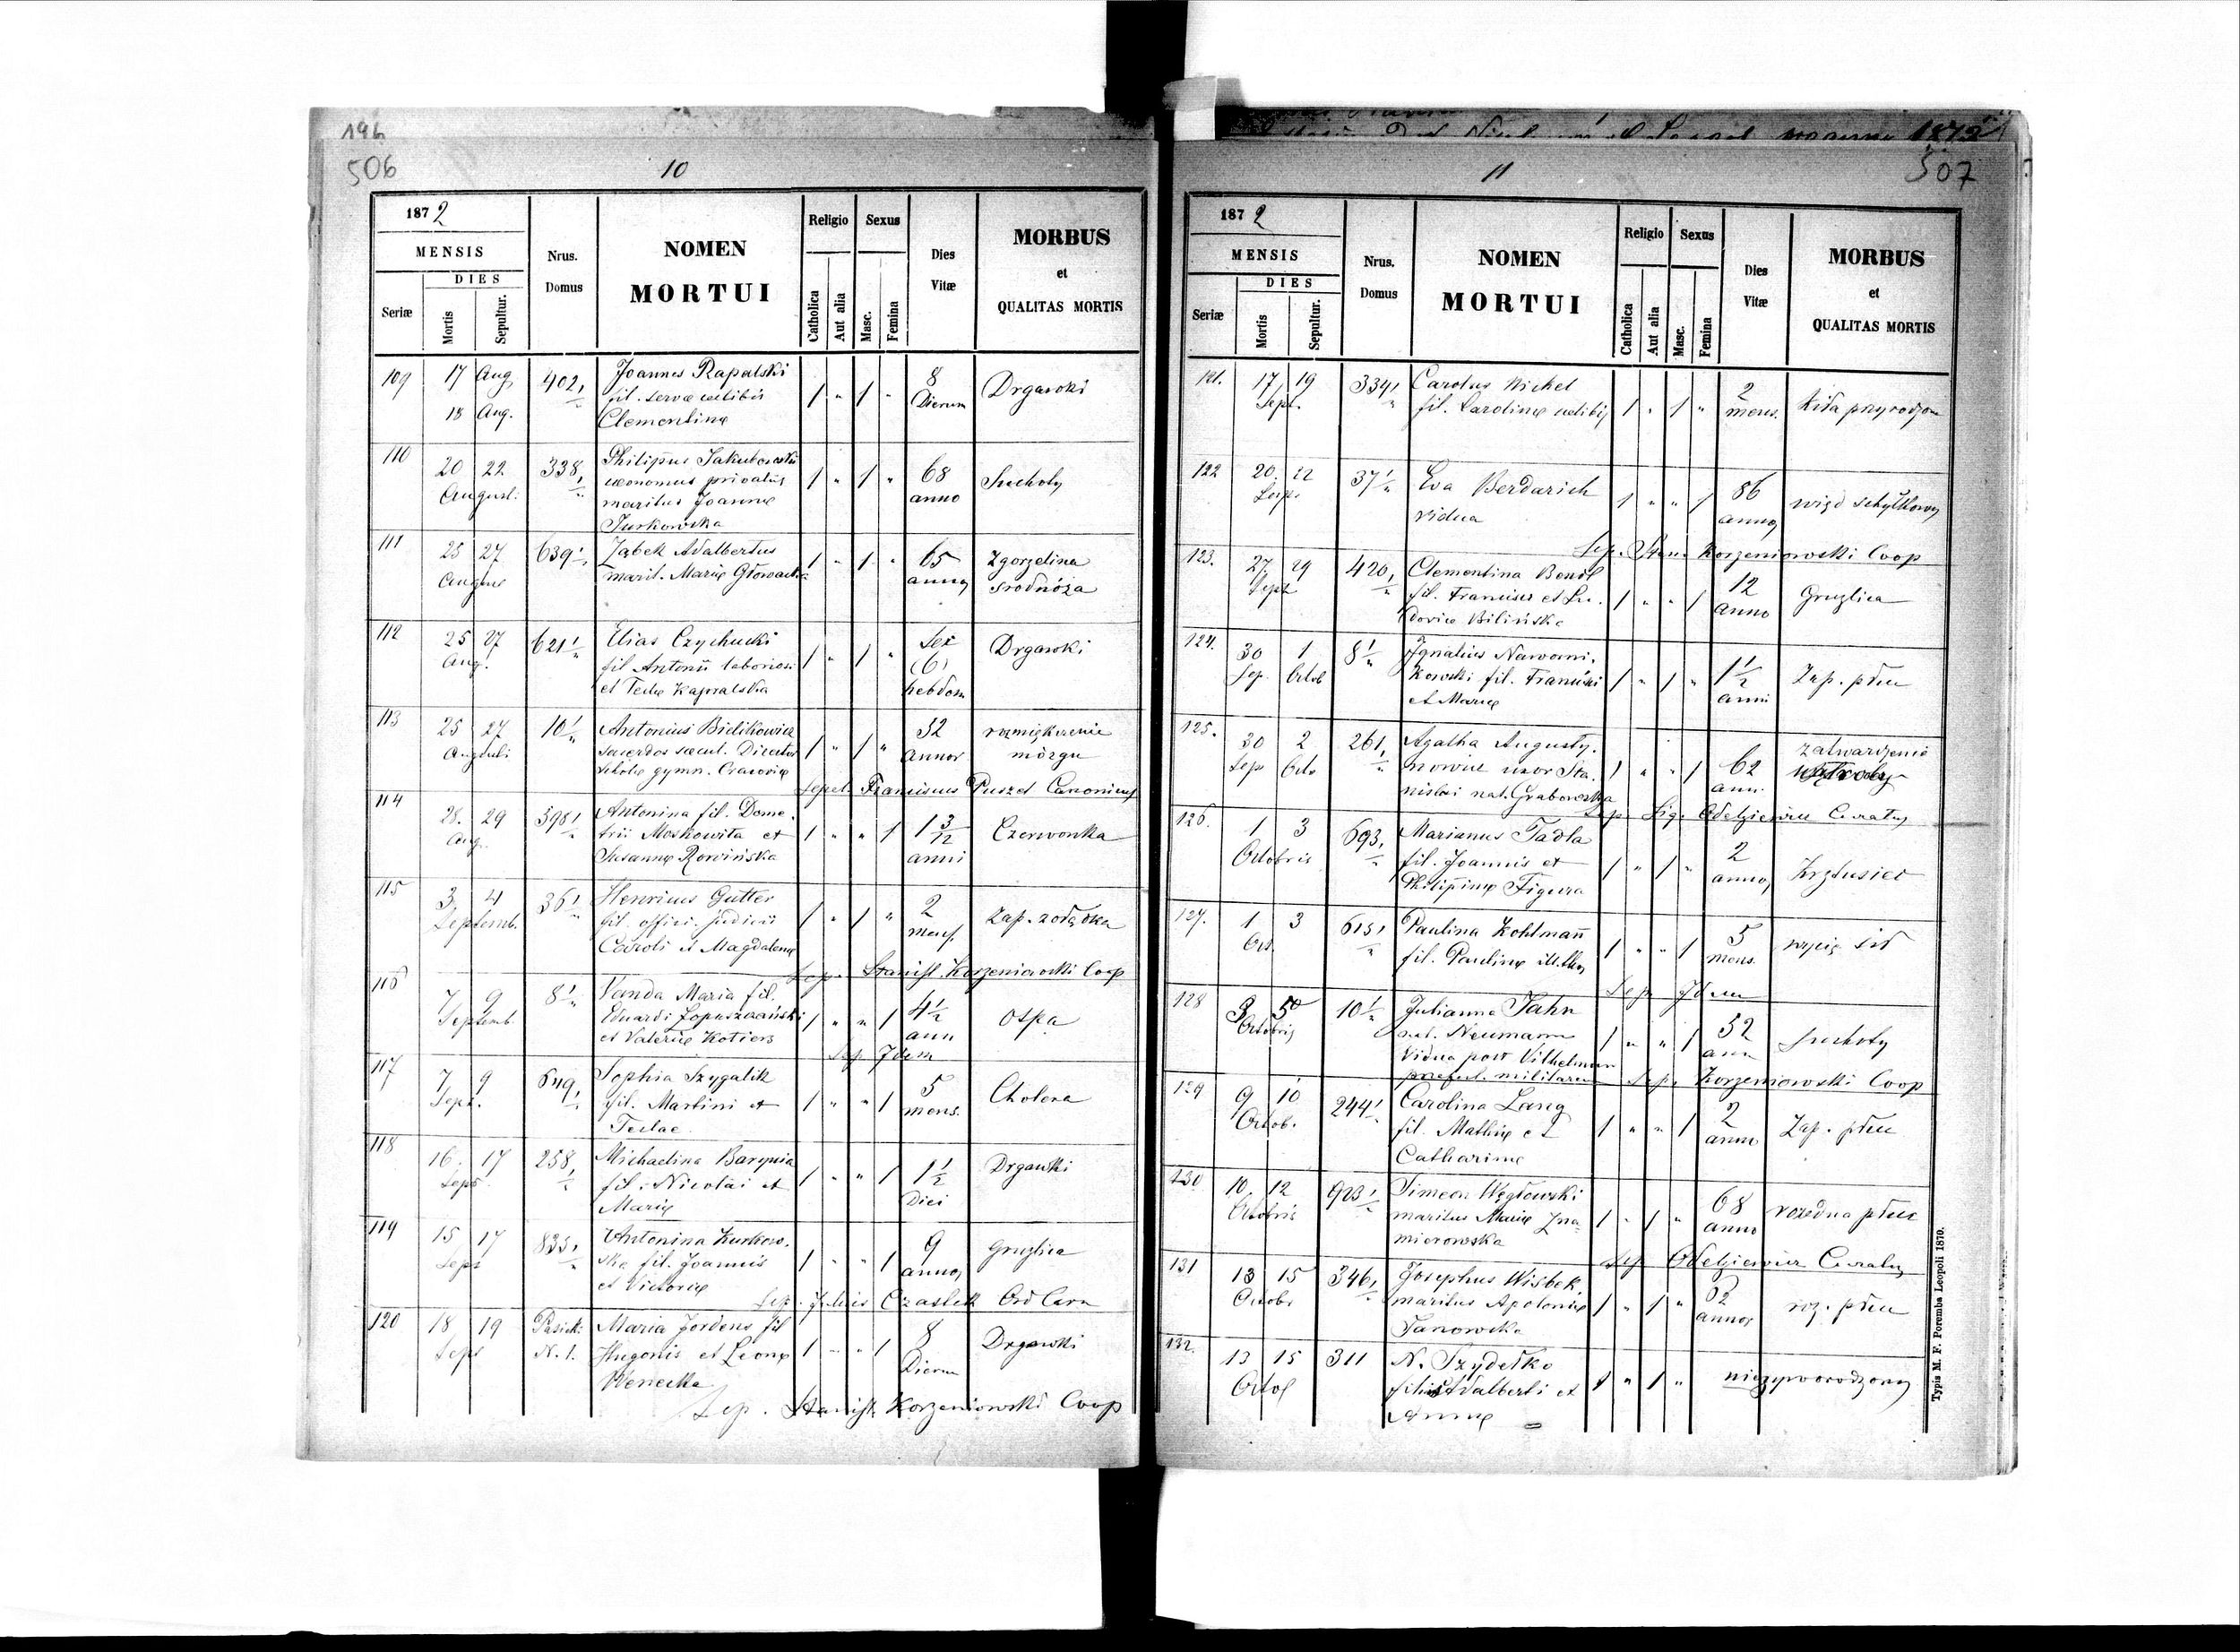 196
506
10
187 2
MENSIS
DIES
Seriæ
Mortis
Sepultur.
Nrus.
Domus
NOMEN
MORTUI
Religio
Catholica
Aut alia
Sexus
Masc.
Femina
Dies
Vitæ
MORBUS
et
QUALITAS MORTIS
109 17 Aug 18 Aug. 402 Joannes Rapalski 1 " 1 " 8 Dierum Drgawki
fil. servæ celibis
Clementinæ
110 20 22 August. 338 Philipus Jakubowski 1 " 1 " 68 anno Suchoty
œconomus privatus
maritus Joannæ
Jurkowska
111 25 27 639 Ząbek Adalbertus 1 " 1 " 65 annor Zgorzelina
marit. Mariæ Głowacka
112 25 27 Aug. 621 Elias Czychucki 1 " 1 " Sex (6) hebdom Drgawki
fil Antonii laboriosi
et Teclæ Kapralska
113 25 27 Augusti 10 Antonius Bielikowicz 1 " 1 " 52 annor rozmiękczenie mózgu
sacerdos sæcul. Director
scholæ gymn. Cracoviæ
Sepel. Franciscus Puszet Canonicus
114 28. 29 Aug. 398 Antonina fil. Deme- 1 " " 1 1 3/12 anni Czerwonka
trii Moskowita et
Susannæ Rowińska
115 3 4 Septemb. 36 Henricus Gutter 1 " 1 " 2 mens. Zap. żołądka
fil. offici. judicii
Caroli et Magdalenæ
Sep. Stanisl. Korzeniowski Coop
116 7 9 Septemb. 8 Vanda Maria fil. 1 " " 1 4 1/2 ann Ospa
Eduardi Łopuszański
et Valeriæ Kotiers
Sep Idem
117 7 9 Sept. 649 Sophia Szygalik 1 " " 1 5 mens. Cholera
fil. Martini et
Teclae
118 16. 17 Sept. 258 Michaelina 1 " " 1 1 1/2 Diei Drgawki
fil. Nicolai et
Mariæ
119 15 17 Sept 835 Antonina Kurkow- 1 " " 1 9 annor Gruzlica
ska fil. Joannis
et Victoriæ
Sep. Julius Czastek
120 18 19 Sept N. 1. Maria Jordens fil 1 " " 1 8 Dierum Drgawki
Hugonis et Leonæ
Wenecka
Sep. Stanisl. Korzeniowski Coop
1872
507
11
187 2
MENSIS
DIES
Seriæ
Mortis
Sepultur.
Nrus.
Domus
NOMEN
MORTUI
Religio
Catholica
Aut alia
Sexus
Masc.
Femina
Dies
Vitæ
MORBUS
et
QUALITAS MORTIS
121. 17 19 Sept. 334 Carolus Michel 1 " 1 " 2 mens. Kiła przyrodzon
fil. Carolinæ celibis
122 20 22 Sep. 37 Eva Berdarich 1 " " 1 86 annor wiąd schyłkowy
vidua
Sep. Stan. Korzeniowski Coop
123. 27. 29 Sept 420 Clementina Bendl 1 " " 1 12 anno Gruzlica
fil. Francisci et Lu-
dovicæ Bilińska
124. 30 Sep. 1 Octob 8 Ignatius Nawarni- 1 " 1 " 1 1/2 anni Zap. płuc
kowski fil. Francisci
et Mariæ
125. 30 Sep 2 Octo 261 Agatha Augusty- 1 " " 1 62 ann. zatwardzenie wątroby
nowicz uxor Sta-
nislai nat. Grabowska
Sep. Sig. Odelgiewicz Curatus
126. 1 3 Octobris 693 Marianus Tadla 1 " 1 " 2 annor Krztusiec
fil. Joannis et
Philipinæ Figura
127. 1 3 Oct. 615 Paulina Kohlmañ 1 " " 1 5 mens.
fil. Paulinæ
Sep Idem
128 3 5 Octobris 10 Julianna Jahn 1 " " 1 52 ann Suchoty
nat. Neumann
Vidua post Vilhelmum
præfect. militarem
Sep. Korzeniowski Coop
129 9 10 Octob. 244 Carolina Lang 1 " " 1 2 anno Zap. płuc
fil. Mathiæ et
Catharinæ
130 10 12 Octobris 923 Simeon Węgłowski 1 " 1 " 68 anno rozedma płuc
maritus Mariæ Zna-
mierowska
Sep Odelgiewicz Curatus
131 13 15 Octobr 346 Josephus Wisbek 1 " 1 " 62 annor roz. płuc
maritus Apoloniæ
Janowska
132. 13 15 Octob 311 N. Szydełko 1 " 1 " nieżyworodzony
filius Adalberti et
Annæ
Typis M. F. Poremba Leopoli 1870.